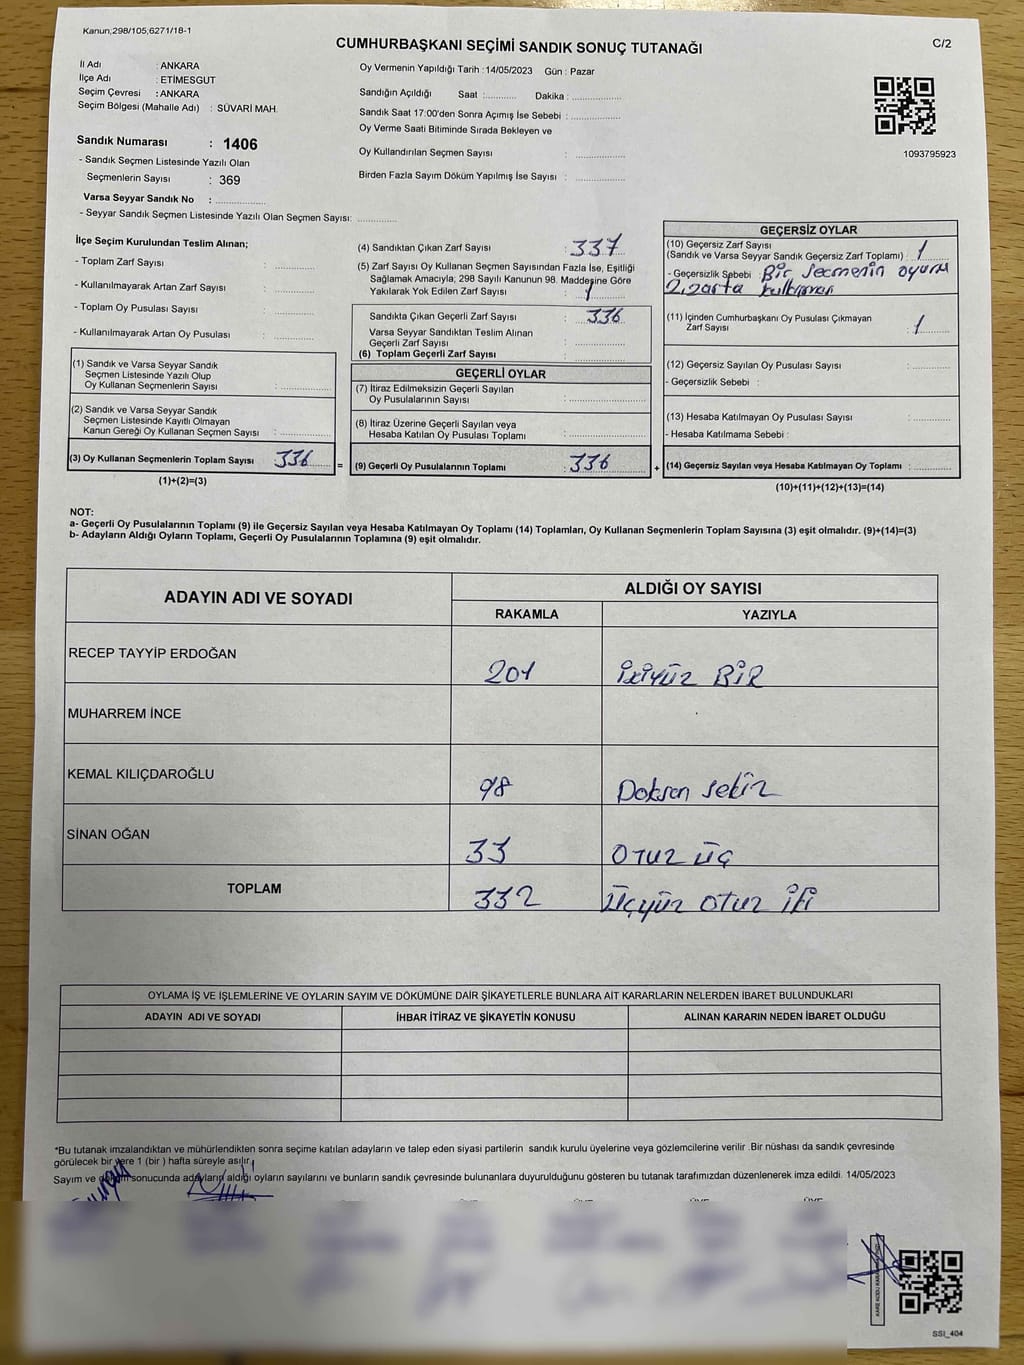 Kanun;298/105;6271/18-1
CUMHURBAŞKANI SEÇİMİ SANDIK SONUÇ TUTANAĞI
C/2
İl Adı : ANKARA
İlçe Adı : ETİMESGUT
Seçim Çevresi : ANKARA
Seçim Bölgesi (Mahalle Adı) : SÜVARİ MAH.
Sandık Numarası : 1406
- Sandık Seçmen Listesinde Yazılı Olan
Seçmenlerin Sayısı : 369
Varsa Seyyar Sandık No :
- Seyyar Sandık Seçmen Listesinde Yazılı Olan Seçmen Sayısı:
Oy Vermenin Yapıldığı Tarih : 14/05/2023 Gün : Pazar
Sandığın Açıldığı Saat : Dakika :
Sandık Saat 17:00'den Sonra Açımış İse Sebebi :
Oy Verme Saati Bitiminde Sırada Bekleyen ve
Oy Kullandırılan Seçmen Sayısı :
Birden Fazla Sayım Döküm Yapılmış İse Sayısı :
1093795923
İlçe Seçim Kurulundan Teslim Alınan;
- Toplam Zarf Sayısı :
- Kullanılmayarak Artan Zarf Sayısı :
- Toplam Oy Pusulası Sayısı :
- Kullanılmayarak Artan Oy Pusulası :
(1) Sandık ve Varsa Seyyar Sandık
Seçmen Listesinde Yazılı Olup
Oy Kullanan Seçmenlerin Sayısı :
(2) Sandık ve Varsa Seyyar Sandık
Seçmen Listesinde Kayıtlı Olmayan
Kanun Gereği Oy Kullanan Seçmen Sayısı :
(3) Oy Kullanan Seçmenlerin Toplam Sayısı : 336
(1)+(2)=(3)
(4) Sandıktan Çıkan Zarf Sayısı : 337
(5) Zarf Sayısı Oy Kullanan Seçmen Sayısından Fazla İse, Eşitliği
Sağlamak Amacıyla, 298 Sayılı Kanunun 98. Maddesine Göre
Yakılarak Yok Edilen Zarf Sayısı : 1
Sandıkta Çıkan Geçerli Zarf Sayısı : 336
Varsa Seyyar Sandıktan Teslim Alınan
Geçerli Zarf Sayısı :
(6) Toplam Geçerli Zarf Sayısı :
GEÇERLİ OYLAR
(7) İtiraz Edilmeksizin Geçerli Sayılan
Oy Pusulalarının Sayısı :
(8) İtiraz Üzerine Geçerli Sayılan veya
Hesaba Katılan Oy Pusulası Toplamı :
= (9) Geçerli Oy Pusulalarının Toplamı : 336 +
GEÇERSİZ OYLAR
(10) Geçersiz Zarf Sayısı
(Sandık ve Varsa Seyyar Sandık Geçersiz Zarf Toplamı) : 1
- Geçersizlik Sebebi : Bir seçmenin oyunu
2. zarfa
(11) İçinden Cumhurbaşkanı Oy Pusulası Çıkmayan
Zarf Sayısı : 1
(12) Geçersiz Sayılan Oy Pusulası Sayısı :
- Geçersizlik Sebebi :
(13) Hesaba Katılmayan Oy Pusulası Sayısı :
- Hesaba Katılmama Sebebi :
(14) Geçersiz Sayılan veya Hesaba Katılmayan Oy Toplamı :
(10)+(11)+(12)+(13)=(14)
NOT:
a- Geçerli Oy Pusulalarının Toplamı (9) ile Geçersiz Sayılan veya Hesaba Katılmayan Oy Toplamı (14) Toplamları, Oy Kullanan Seçmenlerin Toplam Sayısına (3) eşit olmalıdır. (9)+(14)=(3)
b- Adayların Aldığı Oyların Toplamı, Geçerli Oy Pusulalarının Toplamına (9) eşit olmalıdır.
ADAYIN ADI VE SOYADI
ALDIĞI OY SAYISI
RAKAMLA YAZIYLA
RECEP TAYYİP ERDOĞAN 201 İKİYÜZ BİR
MUHARREM İNCE
KEMAL KILIÇDAROĞLU 98 Doksan sekiz
SİNAN OĞAN 33 OTUZ ÜÇ
TOPLAM 332 Üçyüz OTUZ İKİ
OYLAMA İŞ VE İŞLEMLERİNE VE OYLARIN SAYIM VE DÖKÜMÜNE DAİR ŞİKAYETLERLE BUNLARA AİT KARARLARIN NELERDEN İBARET BULUNDUKLARI
ADAYIN ADI VE SOYADI İHBAR İTİRAZ VE ŞİKAYETİN KONUSU ALINAN KARARIN NEDEN İBARET OLDUĞU
*Bu tutanak imzalandıktan ve mühürlendikten sonra seçime katılan adayların ve talep eden siyasi partilerin sandık kurulu üyelerine veya gözlemcilerine verilir .Bir nüshası da sandık çevresinde
görülecek bir yere 1 (bir ) hafta süreyle asılır.
Sayım ve döküm sonucunda adayların aldığı oyların sayılarını ve bunların sandık çevresinde bulunanlara duyurulduğunu gösteren bu tutanak tarafımızdan düzenlenerek imza edildi. 14/05/2023
SSI_404